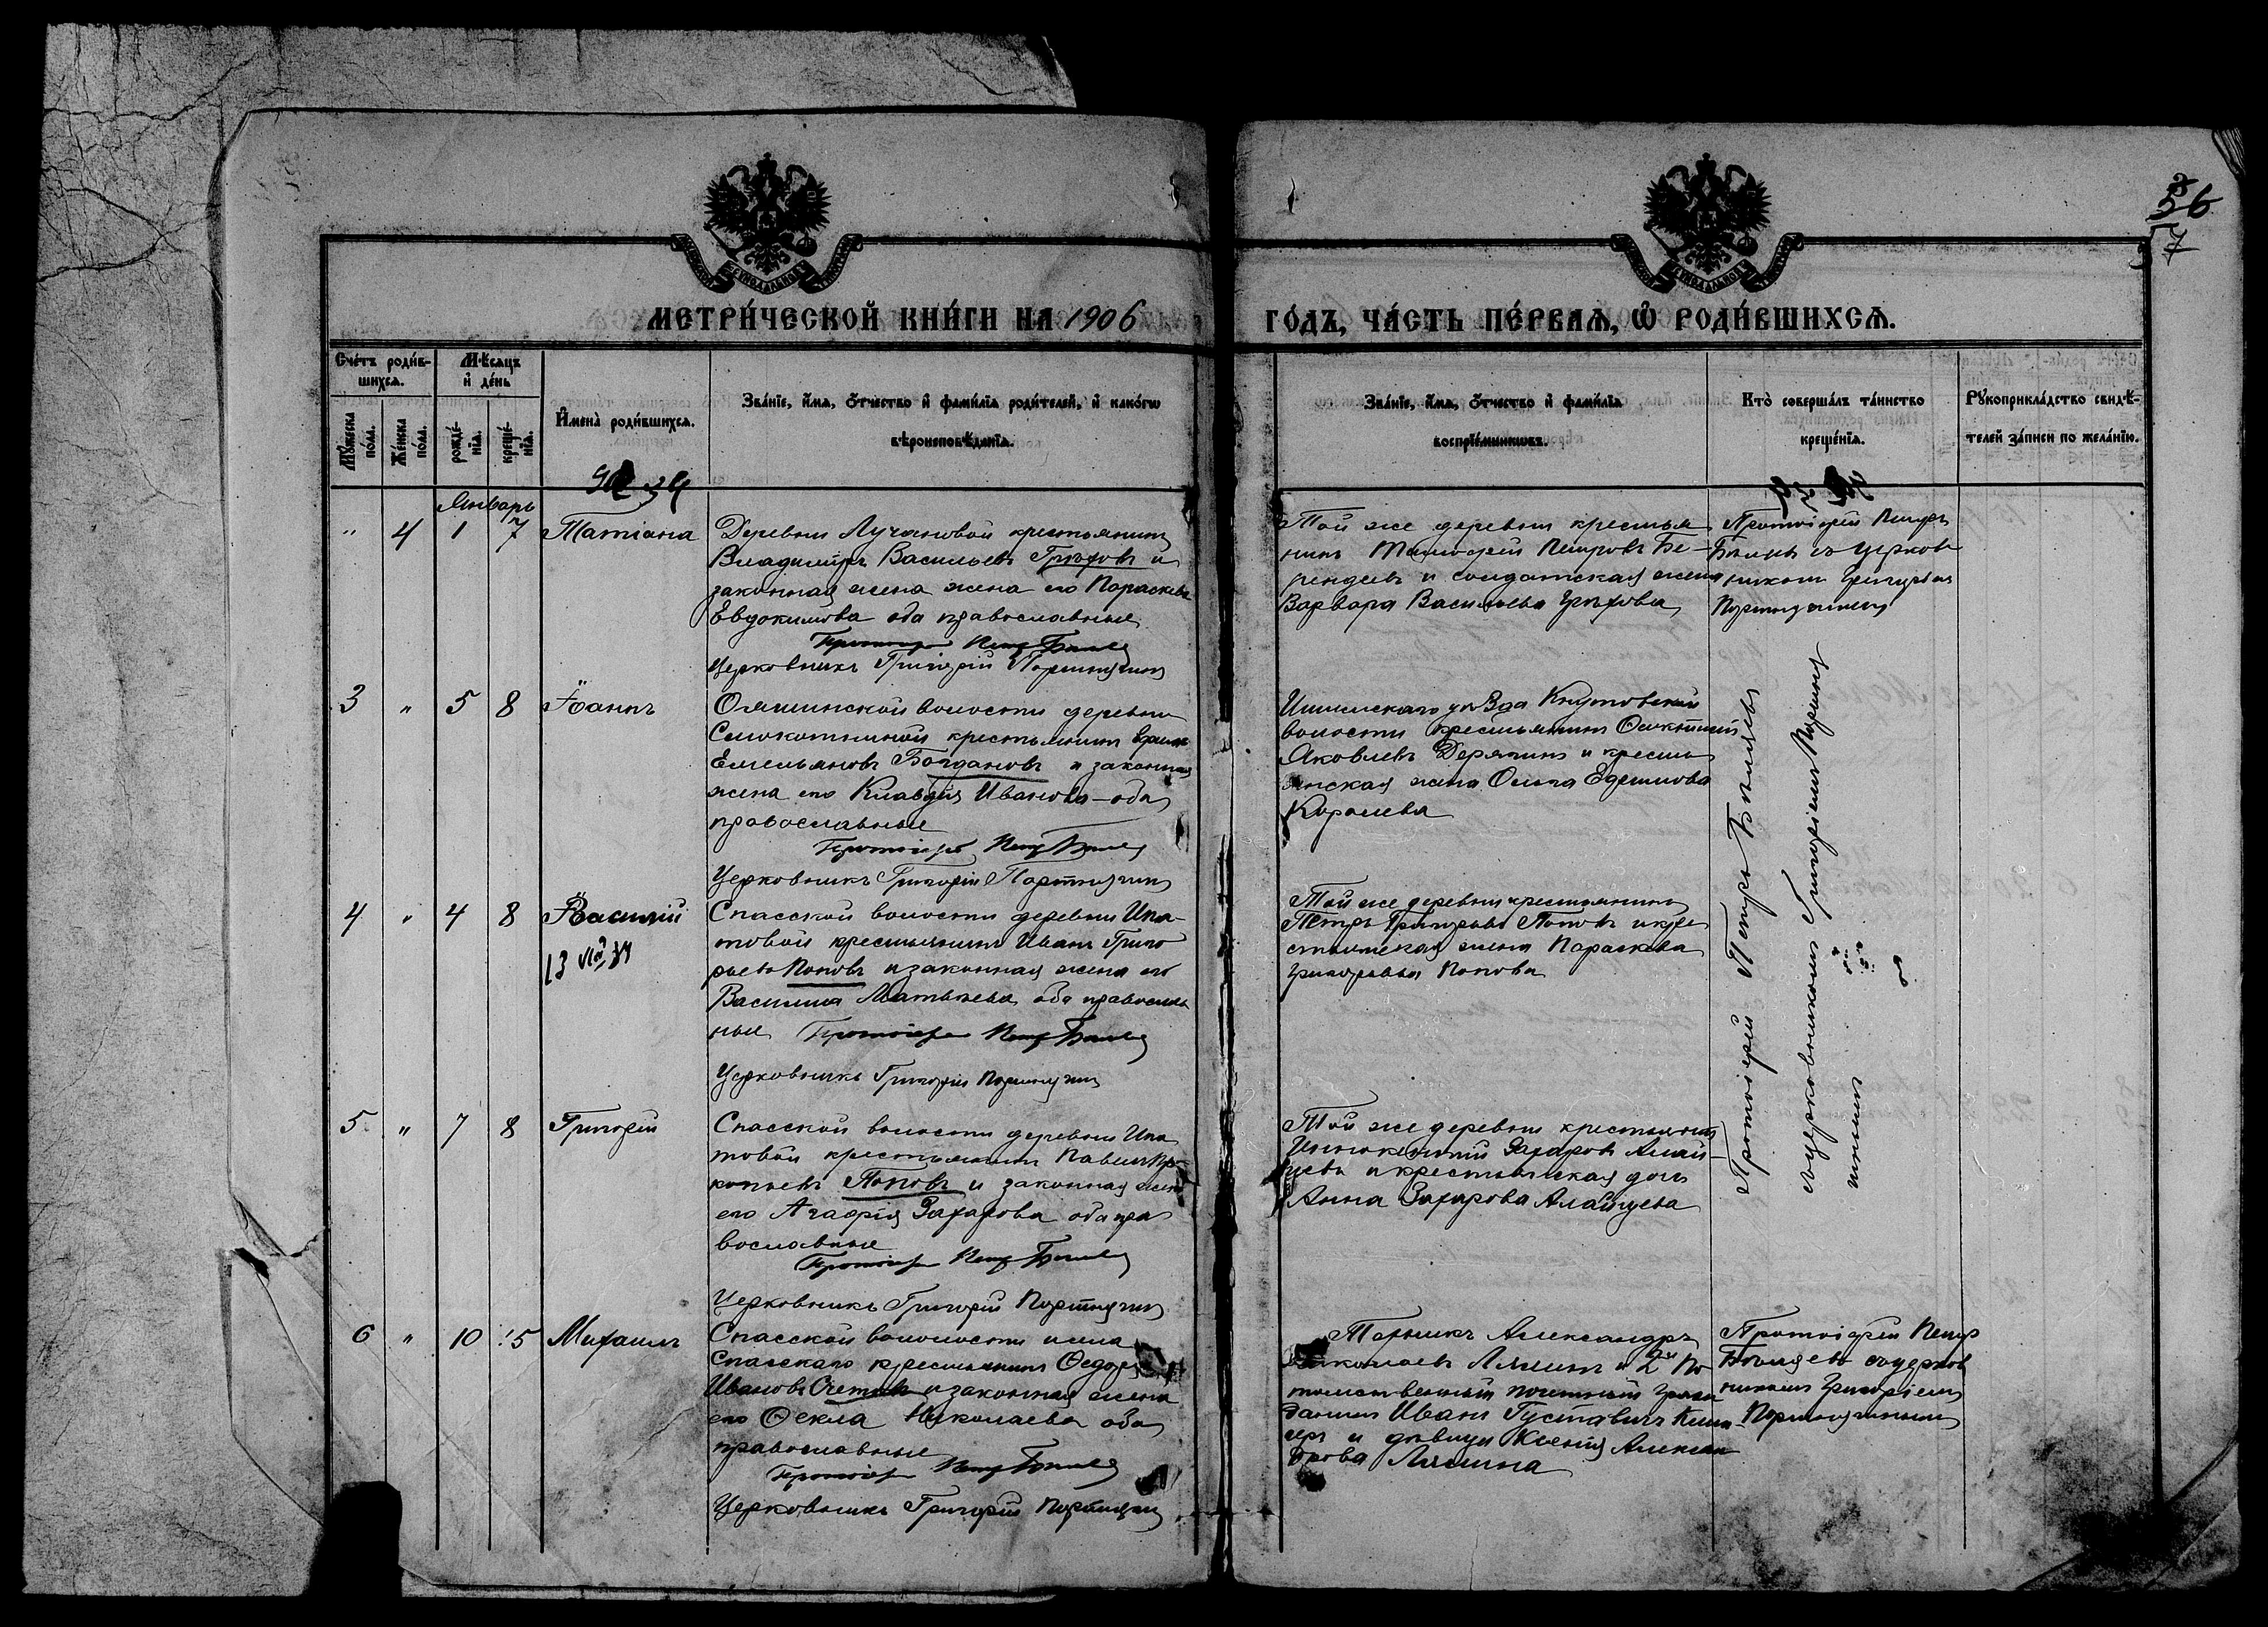 МЕТРИ́ЧЕСКОЙ КНИ́ГИ НА 1906
ГО́ДЪ, ЧА́СТЬ ПЕ́РВАѦ, Ѡ҆ РОДИ́ВШИХСѦ.
56
57
Сче́тъ роди́в-
шихсѧ.
Мѣ́сѧцъ
и҆ де́нь
Мꙋ́жеска
по́ла.
Же́нска
по́ла.
рожде́-
нїѧ.
креще́-
нїѧ.
И҆мена̀ роди́вшихсѧ.
Зва́нїе, и҆́мѧ, ѻ҆́тчество и҆ фами́лїа роди́телей, и҆ како́гѡ
вѣроисповѣ́данїѧ.
Зва́нїе, и҆́мѧ, ѻ҆́тчество и҆ фами́лїа
воспрїе́мникѡвъ.
Кто̀ соверша́лъ та́инство
креще́нїѧ.
Рꙋкоприкла́дство свидѣ́-
телей за́писи по жела́нїю.
Январь
" 4 1 7 Татіана
Деревни Лучановой крестьянинъ
Владиміръ Васильевъ Грѣховъ и
законная жена жена его Параскева
Евдокимова оба православные
Протоіерей Петръ
Церковникъ Григорій Портнягинъ
Той же деревни крестья
нинъ Тимофей Петровъ Бе-
рендеевъ и солдатская жена
Варвара Васильева Грѣхова
Протоіерей Петръ
съ церков
никомъ Григоріемъ
Портнягинымъ
3 " 5 8 Іоаннъ
волости деревни
крестьянинъ
Емельяновъ Богдановъ и законная
жена его Клавдія Иванова оба
православные
Протоіерей Петръ
Церковникъ Григорій Портнягинъ
Ишимскаго уѣзда
волости крестьянинъ
Яковлевъ и кресть
янская жена Ольга
Королева
Протоіерей Петръ
съ церковникомъ Григоріемъ Портняги
нымъ
4 " 4 8 Василій
Спасской волости деревни Ипа-
товой крестьянинъ Иванъ Григо
рьевъ Поповъ и законная жена его
Василиса Матвѣева оба православ
ные Протоіерей Петръ
Церковникъ Григорій Портнягинъ
Той же деревни крестьянинъ
Петръ Григорьевъ Поповъ и кре
стьянская жена Параскева
Григорьева Попова
5 " 7 8 Григорій
Спасской волости деревни Ипа
товой крестьянинъ Павелъ Про-
копьевъ Поповъ и законная жена
его Агафія Захарова оба пра
вославные
Протоіерей Петръ
Церковникъ Григорій Портнягинъ
Той же деревни крестьянинъ
Иннокентій Захаровъ Алай-
цевъ и крестьянская дочь
Анна Захарова Алайцева
6 " 10 15 Михаилъ
Спасской волости села
Спасскаго крестьянинъ Ѳедоръ
Ивановъ и законная жена
его Ѳекла Николаева оба
православные
Протоіерей Петръ
Церковникъ Григорій Портнягинъ
Александръ
Николаевъ и 2й по
томственный почетный граж
данинъ Иванъ Густавичъ
и дѣвица Ксенія Алексан
дрова
Протоіерей Петръ
съ церков
никомъ Григоріемъ
Портнягинымъ